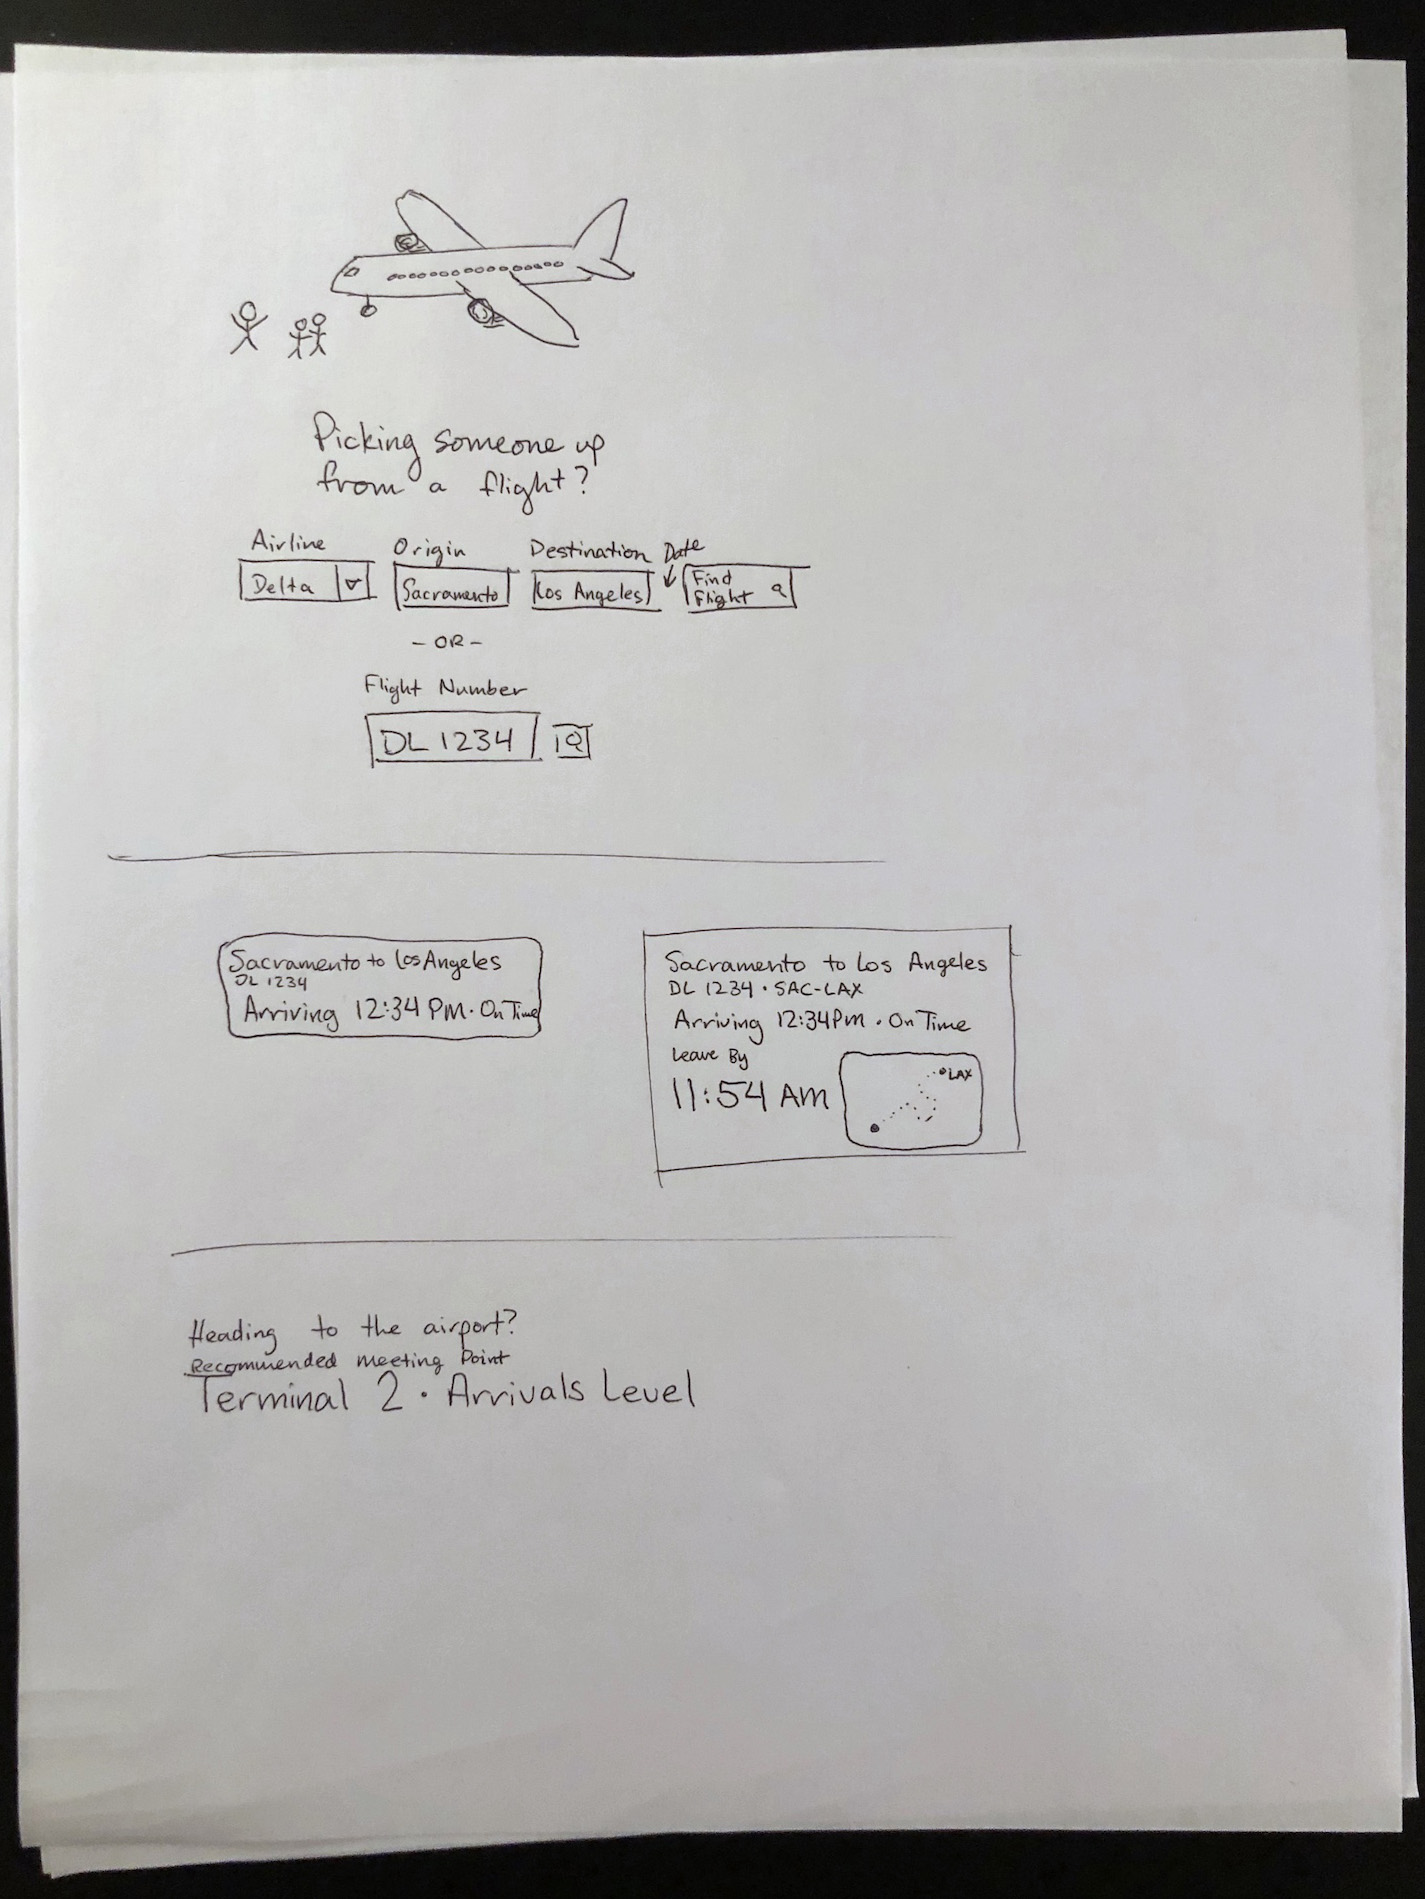 Picking someone up
from a flight?
Airline Origin Destination Date
Delta Sacramento Los Angeles Find
Flight
- OR -
Flight Number
DL 1234
Sacramento to Los Angeles
DL 1234
Arriving 12:34 PM · On Time
Sacramento to Los Angeles
DL 1234 · SAC-LAX
Arriving 12:34PM · On Time
Leave By
11:54 AM
LAX
Heading to the airport?
Recommended meeting Point
Terminal 2 · Arrivals Level